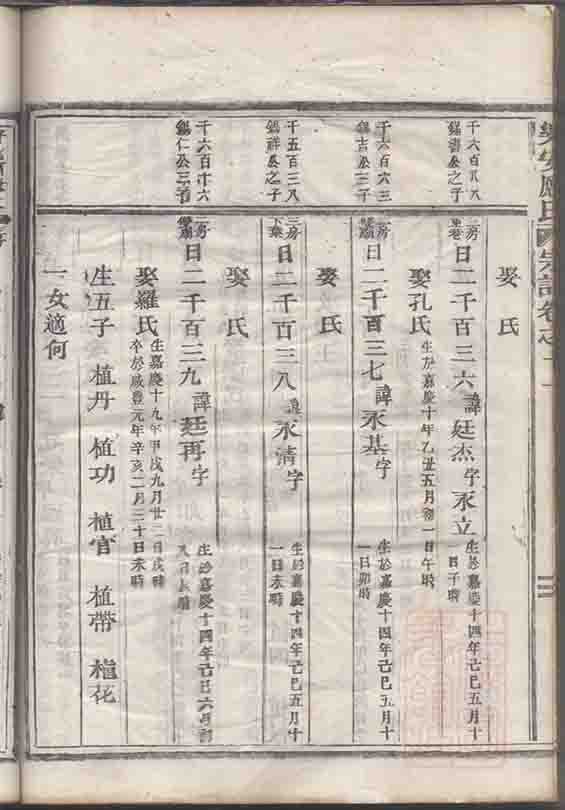 氏宗譜卷之十
娶 氏
千六百八八
錫書公之子
二房
日二千百三六 諱廷杰 字永立 生於嘉慶十四年己巳五月十
四日子時
娶孔氏 生於嘉慶十年乙丑五月初一日午時
千六百六三
錫吉公三子
日二千百三七 諱永基 字 生於嘉慶十四年己巳五月十
一日卯時
娶 氏
千五百三八
錫祥公之子
三房
下葉
日二千百三八 諱永清 字 生於嘉慶十四年己巳五月十
一日未時
娶 氏
千六百十六
錫仁公三子
二房
日二千百三九 諱廷再 字 生於嘉慶十四年己巳六月初
八日 時
娶羅氏 生嘉慶十九年甲戌九月廿二日戌時
卒於咸豐元年辛亥二月三十日未時
生五子 植丹 植功 植官 植帶 植花
一女適何